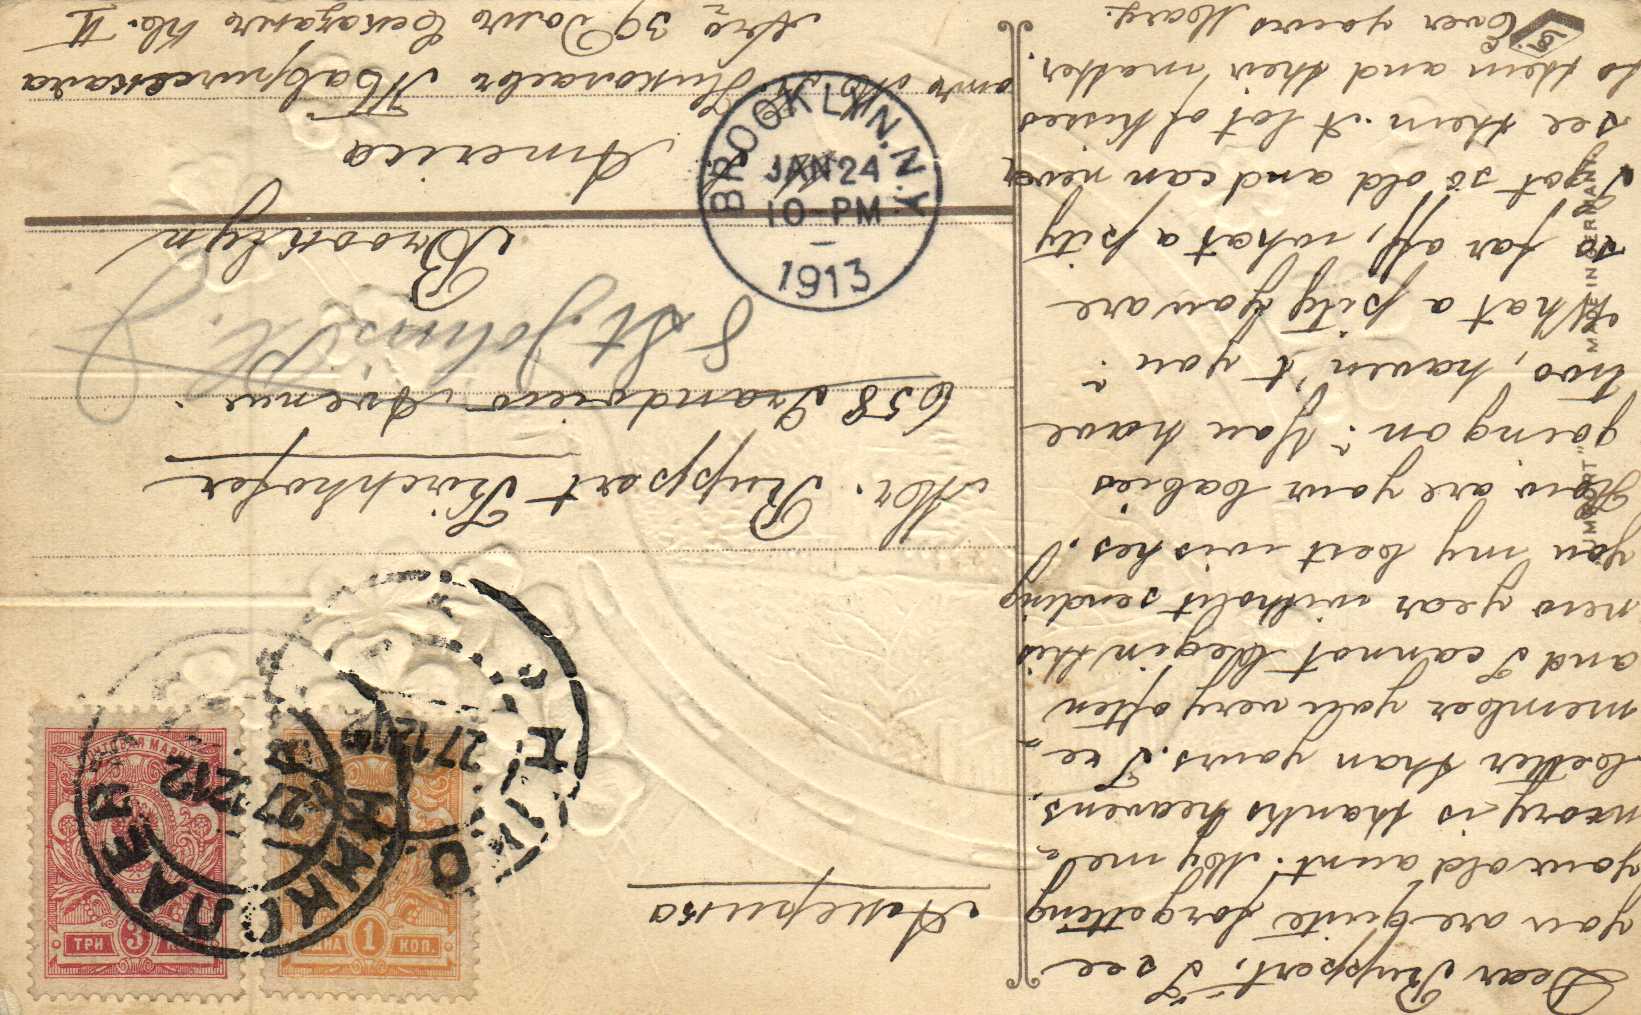 Dear Ruppert, I see
you are quite forgotting
your old aunt. My me=
mory is thanks heavens
better than yours. I re=
member you very often
and I cannot begin this
new year without sending
you my best wishes.
How are your babies
going on? You have
two, haven't you?
What a pity you are
so far off, what a pity
I got so old and can never
see them. A lot of kisses
to them and their mother.
Ever yours Mary.
Америка
Mr. Ruppert Kirchhofer
658 Grandview Avenue
8 St Johns Pl.
Brooklyn
America
Николаев Таврическая
39
BROOKLYN, N.Y.
JAN 24
10-PM
1913
НИКОЛАЕВ
27 12 12
27 12 12
ПОЧТОВАЯ МАРКА
ТРИ 3 КОП.
ОДНА 1 КОП.
MADE IN GERMANY.